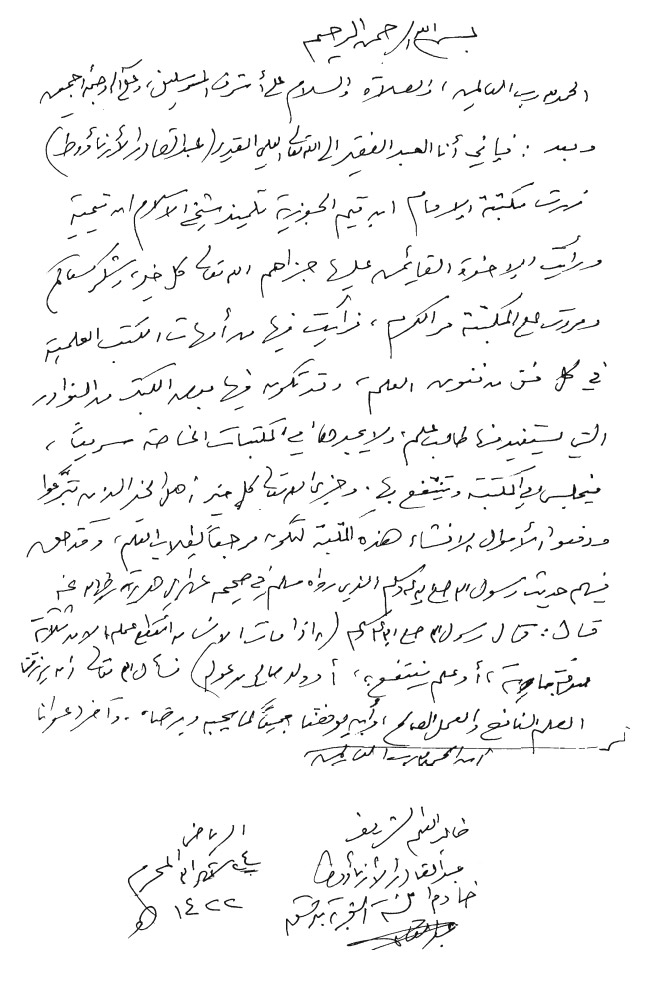 بسم الله الرحمن الرحيم
الحمد لله رب العالمين ، والصلاة والسلام على أشرف المرسلين ، وعلى آله وصحبه أجمعين
وبعد : فإني أنا العبد الفقير إلى الله تعالى العلي القدير (عبد القادر الأرناؤوط)
زرت مكتبة الإمام ابن قيم الجوزية تلميذ شيخ الاسلام ابن تيمية
ورأيت الإخوة القائمين عليها جزاهم الله تعالى كل خير ، وشكر مسعاكم
ومررت على المكتبة مر الكرام ، فرأيت فيها من أمهات الكتب العلمية
في كل فن من فنون العلم ، وقد تكون فيها بعض الكتب من النوادر
التي يستفيد منها طالب علم ، ولا يجدها في المكتبات الخاصة سريعاً ،
فيجلس في المكتبة وينتفع بها . وجزى الله تعالى كل خير أهل الخير الذين تبرعوا
ودفعوا الأموال لإنشاء هذه المكتبة لتكون مرجعاً لطلاب العلم ، وقد حق
فيهم حديث رسول الله صلى الله عليه وسلم الذي رواه مسلم في صحيحه عن أبي هريرة رضي الله عنه
قال : قال رسول الله صلى الله عليه وسلم (( إذا مات الإنسان انقطع عمله إلا من ثلاثة
صدقة جارية ، أو علم ينتفع به ، أو ولد صالح يدعو له )) نسأل الله تعالى أن يرزقنا
العلم النافع والعمل الصالح ، وأن يوفقنا جميعاً لما يحبه ويرضاه . وآخر دعوانا
أن الحمد لله رب العالمين
الرياض
في شهر الله المحرم
١٤٢٢ هـ
خادم العلم الشريف
عبد القادر الأرناؤوط
خادم السنة النبوية بدمشق